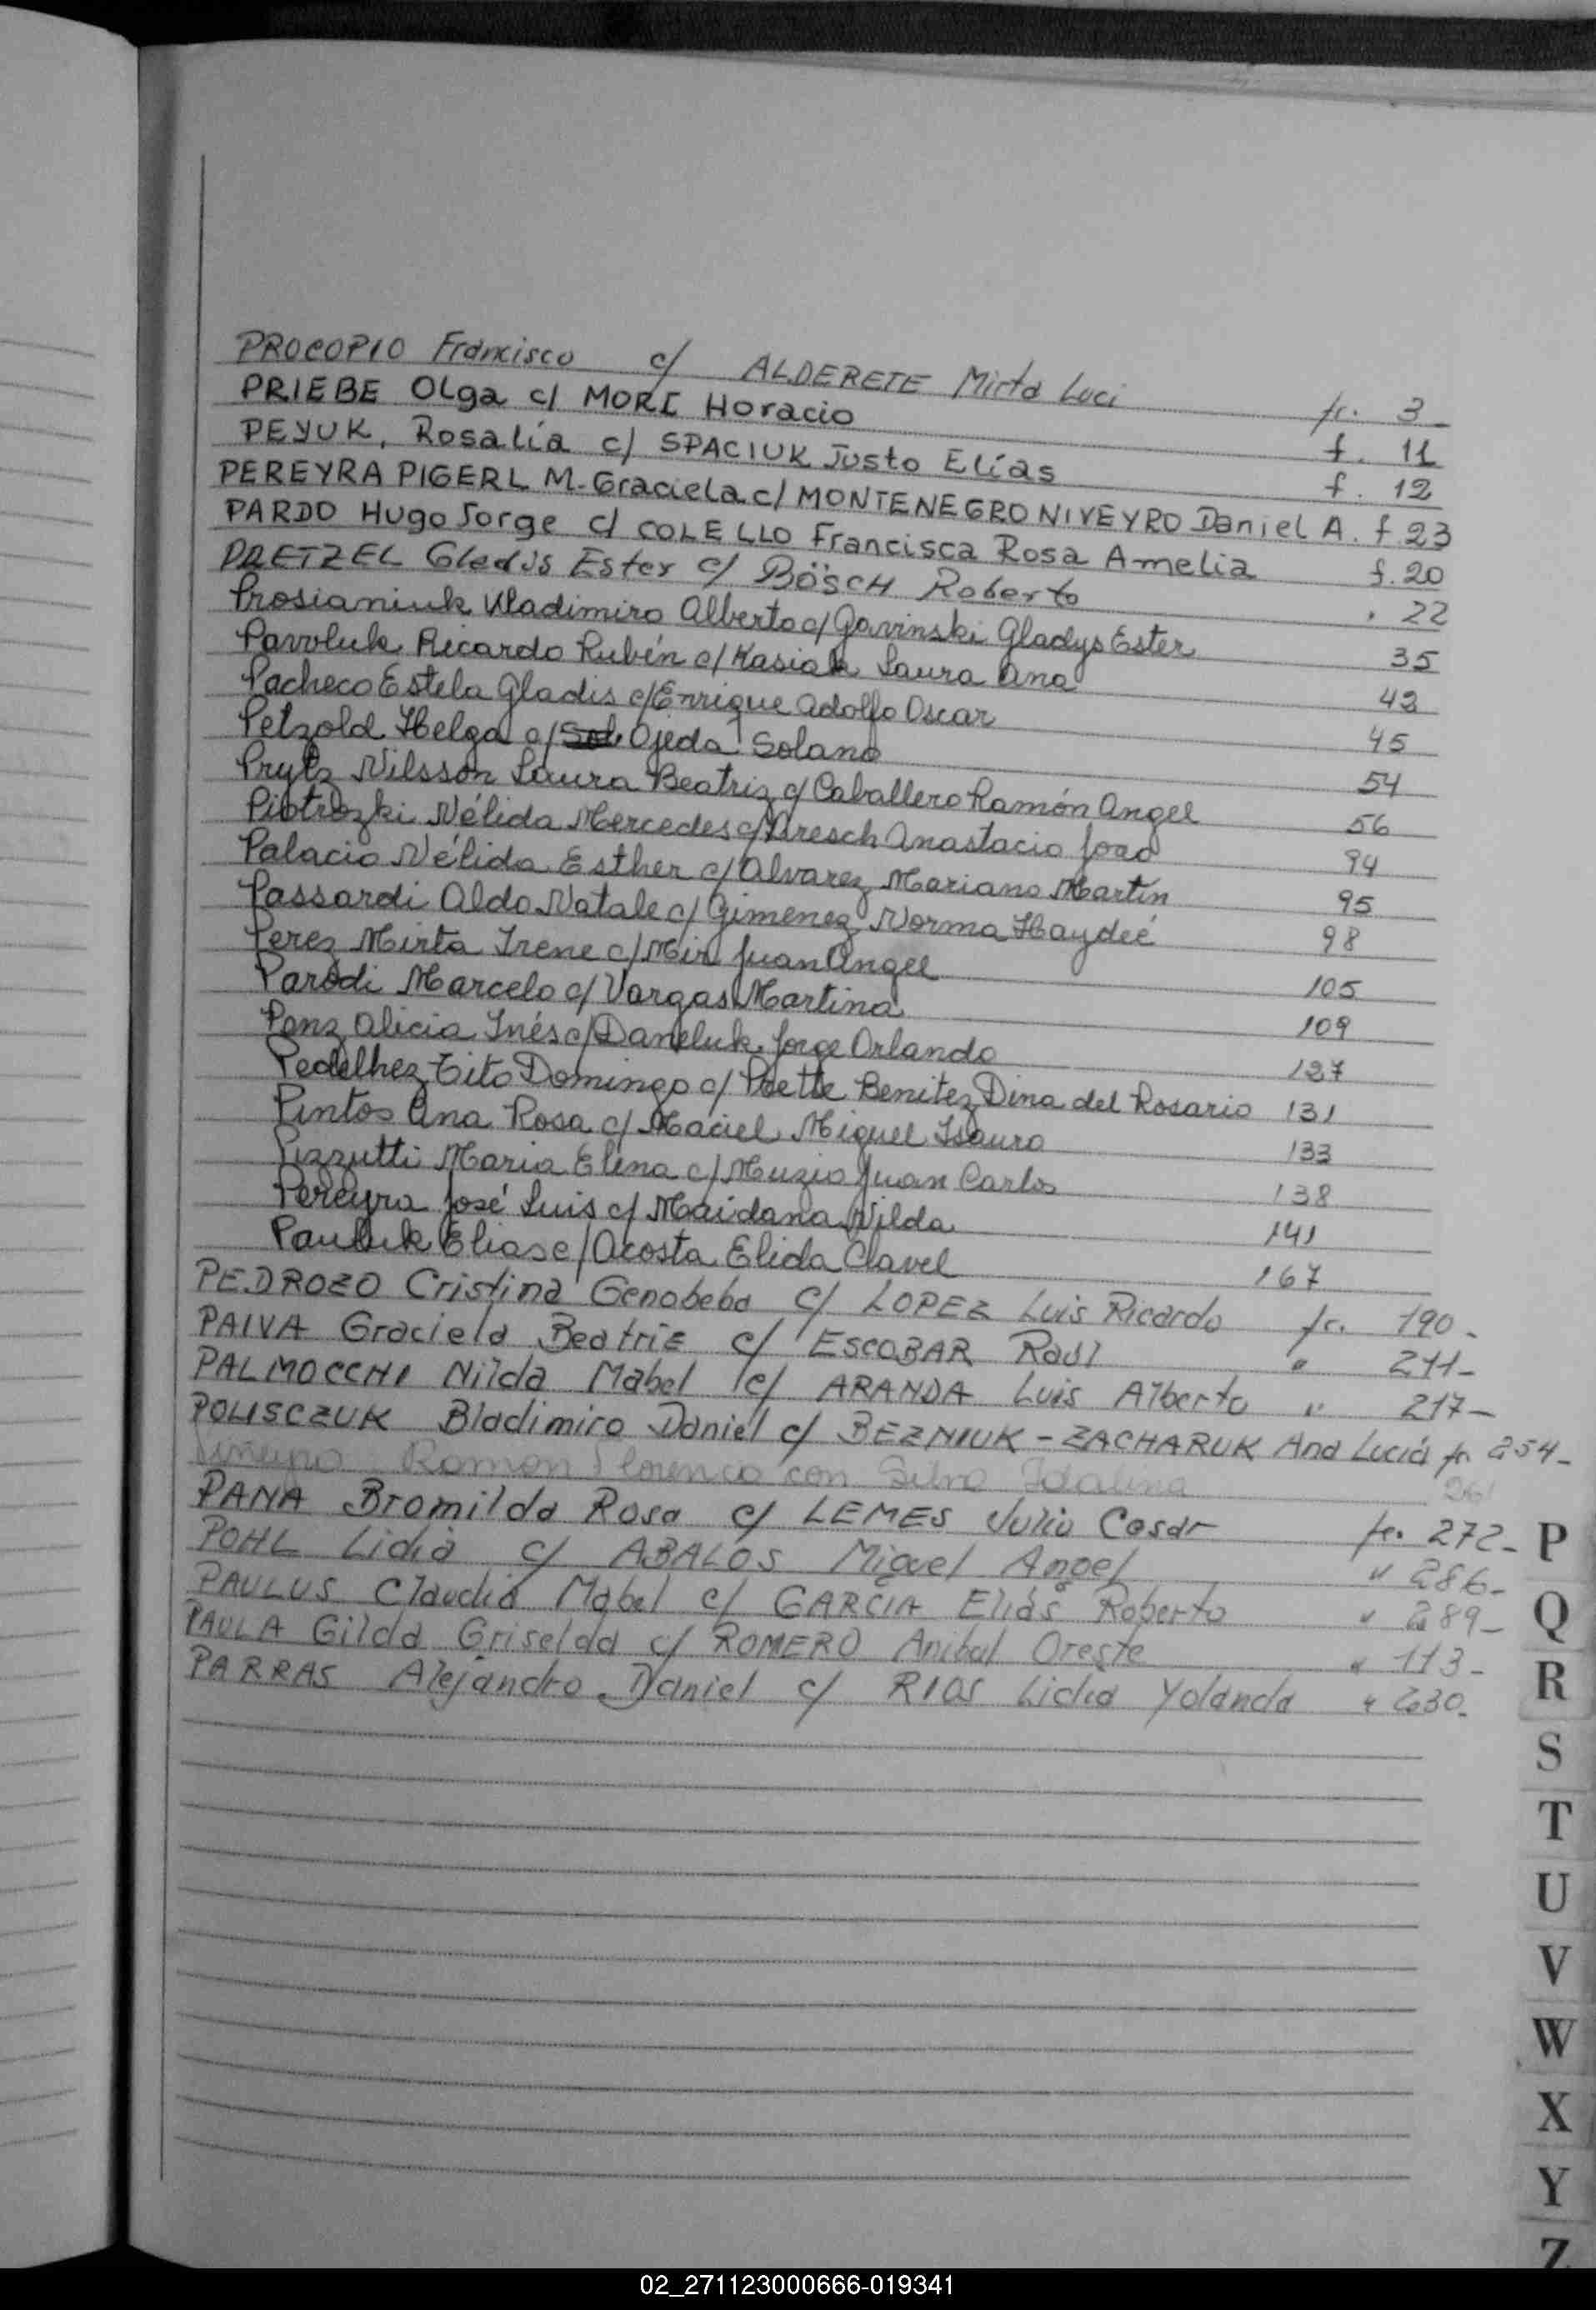 PROCOPIO Francisco c/ ALDERETE Mirta Luci fr. 3
PRIEBE Olga c/ MORI Horacio f. 11
PEYUK, Rosalía c/ SPACIUK Justo Elías f. 12
PEREYRA PIGERL M. Graciela c/ MONTENEGRO NIVEYRO Daniel A. f. 23
PARDO Hugo Jorge c/ COLELLO Francisca Rosa Amelia f. 20
PRETZEL Gladis Ester c/ BÖSCH Roberto . 22
Prosianiuk Vladimiro Alberto c/ Gavinski Gladys Ester 35
Pavoluk Ricardo Rubén c/ Kasiak Laura Ana 42
Pacheco Estela Gladis c/ Enrique Adolfo Oscar 45
Petzold Helga c/ Ojeda Solano 54
Prytz Nilsson Laura Beatriz c/ Caballero Ramón Angel 56
Nélida Mercedes c/ Aresch Anastacio Joao 94
Palacio Nélida Esther c/ Alvarez Mariano Martín 95
Passardi Aldo Natale c/ Gimenez Norma Haydeé 98
Perez Mirta Irene c/ Mir Juan Angel 105
Parodi Marcelo c/ Vargas Martina 109
Penz Alicia Inés c/ Daneluk Jorge Orlando 127
Pedelhez Tito Domingo c/ Benitez Dina del Rosario 131
Pintos Ana Rosa c/ Maciel Miguel Isauro 133
Pizzutti Maria Elena c/ Muzio Juan Carlos 138
Pereyra José Luis c/ Maidana Nilda 141
Pauluk Elias c/ Acosta Elida Clavel 167
PEDROZO Cristina Genobeba c/ LOPEZ Luis Ricardo fr. 190-
PAIVA Graciela Beatriz c/ ESCOBAR Raúl " 211-
PALMOCCHI Nilda Mabel c/ ARANDA Luis Alberto " 217-
POLISCZUK Bladimiro Daniel c/ BEZNIUK - ZACHARUK Ana Lucía fr. 254-
Ramon Florencio con Silva Idalina 261
PANA Bromilda Rosa c/ LEMES Julio Cesar fr. 272-
POHL Lidia c/ ABALOS Miguel Angel " 286-
PAULUS Claudia Mabel c/ GARCIA Elías Roberto " 289-
PAULA Gilda Griselda c/ ROMERO Anibal Oreste " 113-
PARRAS Alejandro Daniel c/ RIOS Lidia Yolanda " 230-
P
Q
R
S
T
U
V
W
X
Y
Z
02_271123000666-019341